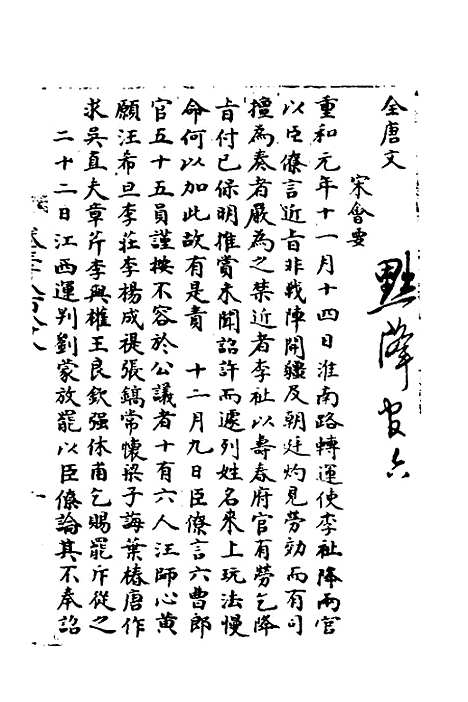 全唐文
宋會要
黜降官六
重和元年十一月十四日淮南路轉運使李祉降兩官
以臣僚言近旨非戰陣開疆及朝廷灼見勞効而有司
擅為奏者嚴為之禁近者李祉以壽春府官有勞乞降
旨付已保明推賞未聞詔許而遽列姓名來上玩法慢
命何以加此故有是責　十二月九日臣僚言六曹郎
官五十五員謹按不容於公議者十有六人汪師心黃
願汪希旦李莊李楊成禔張鎬常懷梁子誨葉椿唐作
求吳直夫章芹李與權王良欽强休甫乞賜罷斥從之
二十二日江西運判劉蒙放罷以臣僚論其不奉詔